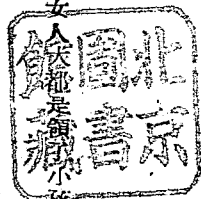 北京
圖書
館藏
女人大都是領小